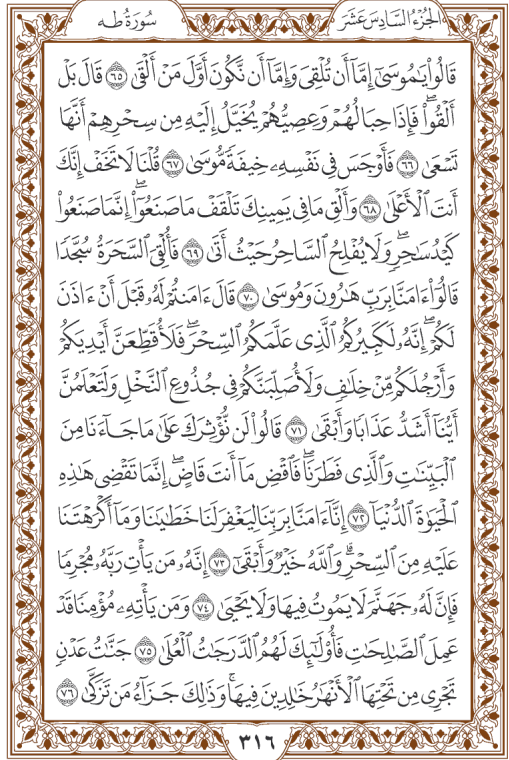 الجُزْءُ السَّادِسَ عَشَرَ
سُورَةُ طه
قَالُوا۟ يَٰمُوسَىٰٓ إِمَّآ أَن تُلْقِىَ وَإِمَّآ أَن نَّكُونَ أَوَّلَ مَنْ أَلْقَىٰ ٦٥ قَالَ بَلْ
أَلْقُوا۟ۖ فَإِذَا حِبَالُهُمْ وَعِصِيُّهُمْ يُخَيَّلُ إِلَيْهِ مِن سِحْرِهِمْ أَنَّهَا
تَسْعَىٰ ٦٦ فَأَوْجَسَ فِى نَفْسِهِۦ خِيفَةً مُّوسَىٰ ٦٧ قُلْنَا لَا تَخَفْ إِنَّكَ
أَنتَ ٱلْأَعْلَىٰ ٦٨ وَأَلْقِ مَا فِى يَمِينِكَ تَلْقَفْ مَا صَنَعُوٓا۟ۖ إِنَّمَا صَنَعُوا۟
كَيْدُ سَٰحِرٍۖ وَلَا يُفْلِحُ ٱلسَّاحِرُ حَيْثُ أَتَىٰ ٦٩ فَأُلْقِىَ ٱلسَّحَرَةُ سُجَّدًا
قَالُوٓا۟ ءَامَنَّا بِرَبِّ هَٰرُونَ وَمُوسَىٰ ٧٠ قَالَ ءَامَنتُمْ لَهُۥ قَبْلَ أَنْ ءَاذَنَ
لَكُمْۖ إِنَّهُۥ لَكَبِيرُكُمُ ٱلَّذِى عَلَّمَكُمُ ٱلسِّحْرَۖ فَلَأُقَطِّعَنَّ أَيْدِيَكُمْ
وَأَرْجُلَكُم مِّنْ خِلَٰفٍ وَلَأُصَلِّبَنَّكُمْ فِى جُذُوعِ ٱلنَّخْلِ وَلَتَعْلَمُنَّ
أَيُّنَآ أَشَدُّ عَذَابًا وَأَبْقَىٰ ٧١ قَالُوا۟ لَن نُّؤْثِرَكَ عَلَىٰ مَا جَآءَنَا مِنَ
ٱلْبَيِّنَٰتِ وَٱلَّذِى فَطَرَنَاۖ فَٱقْضِ مَآ أَنتَ قَاضٍۖ إِنَّمَا تَقْضِى هَٰذِهِ
ٱلْحَيَوٰةَ ٱلدُّنْيَآ ٧٢ إِنَّآ ءَامَنَّا بِرَبِّنَا لِيَغْفِرَ لَنَا خَطَٰيَٰنَا وَمَآ أَكْرَهْتَنَا
عَلَيْهِ مِنَ ٱلسِّحْرِۗ وَٱللَّهُ خَيْرٌ وَأَبْقَىٰٓ ٧٣ إِنَّهُۥ مَن يَأْتِ رَبَّهُۥ مُجْرِمًا
فَإِنَّ لَهُۥ جَهَنَّمَ لَا يَمُوتُ فِيهَا وَلَا يَحْيَىٰ ٧٤ وَمَن يَأْتِهِۦ مُؤْمِنًا قَدْ
عَمِلَ ٱلصَّٰلِحَٰتِ فَأُو۟لَٰٓئِكَ لَهُمُ ٱلدَّرَجَٰتُ ٱلْعُلَىٰ ٧٥ جَنَّٰتُ عَدْنٍ
تَجْرِى مِن تَحْتِهَا ٱلْأَنْهَٰرُ خَٰلِدِينَ فِيهَاۚ وَذَٰلِكَ جَزَآءُ مَن تَزَكَّىٰ ٧٦
٣١٦